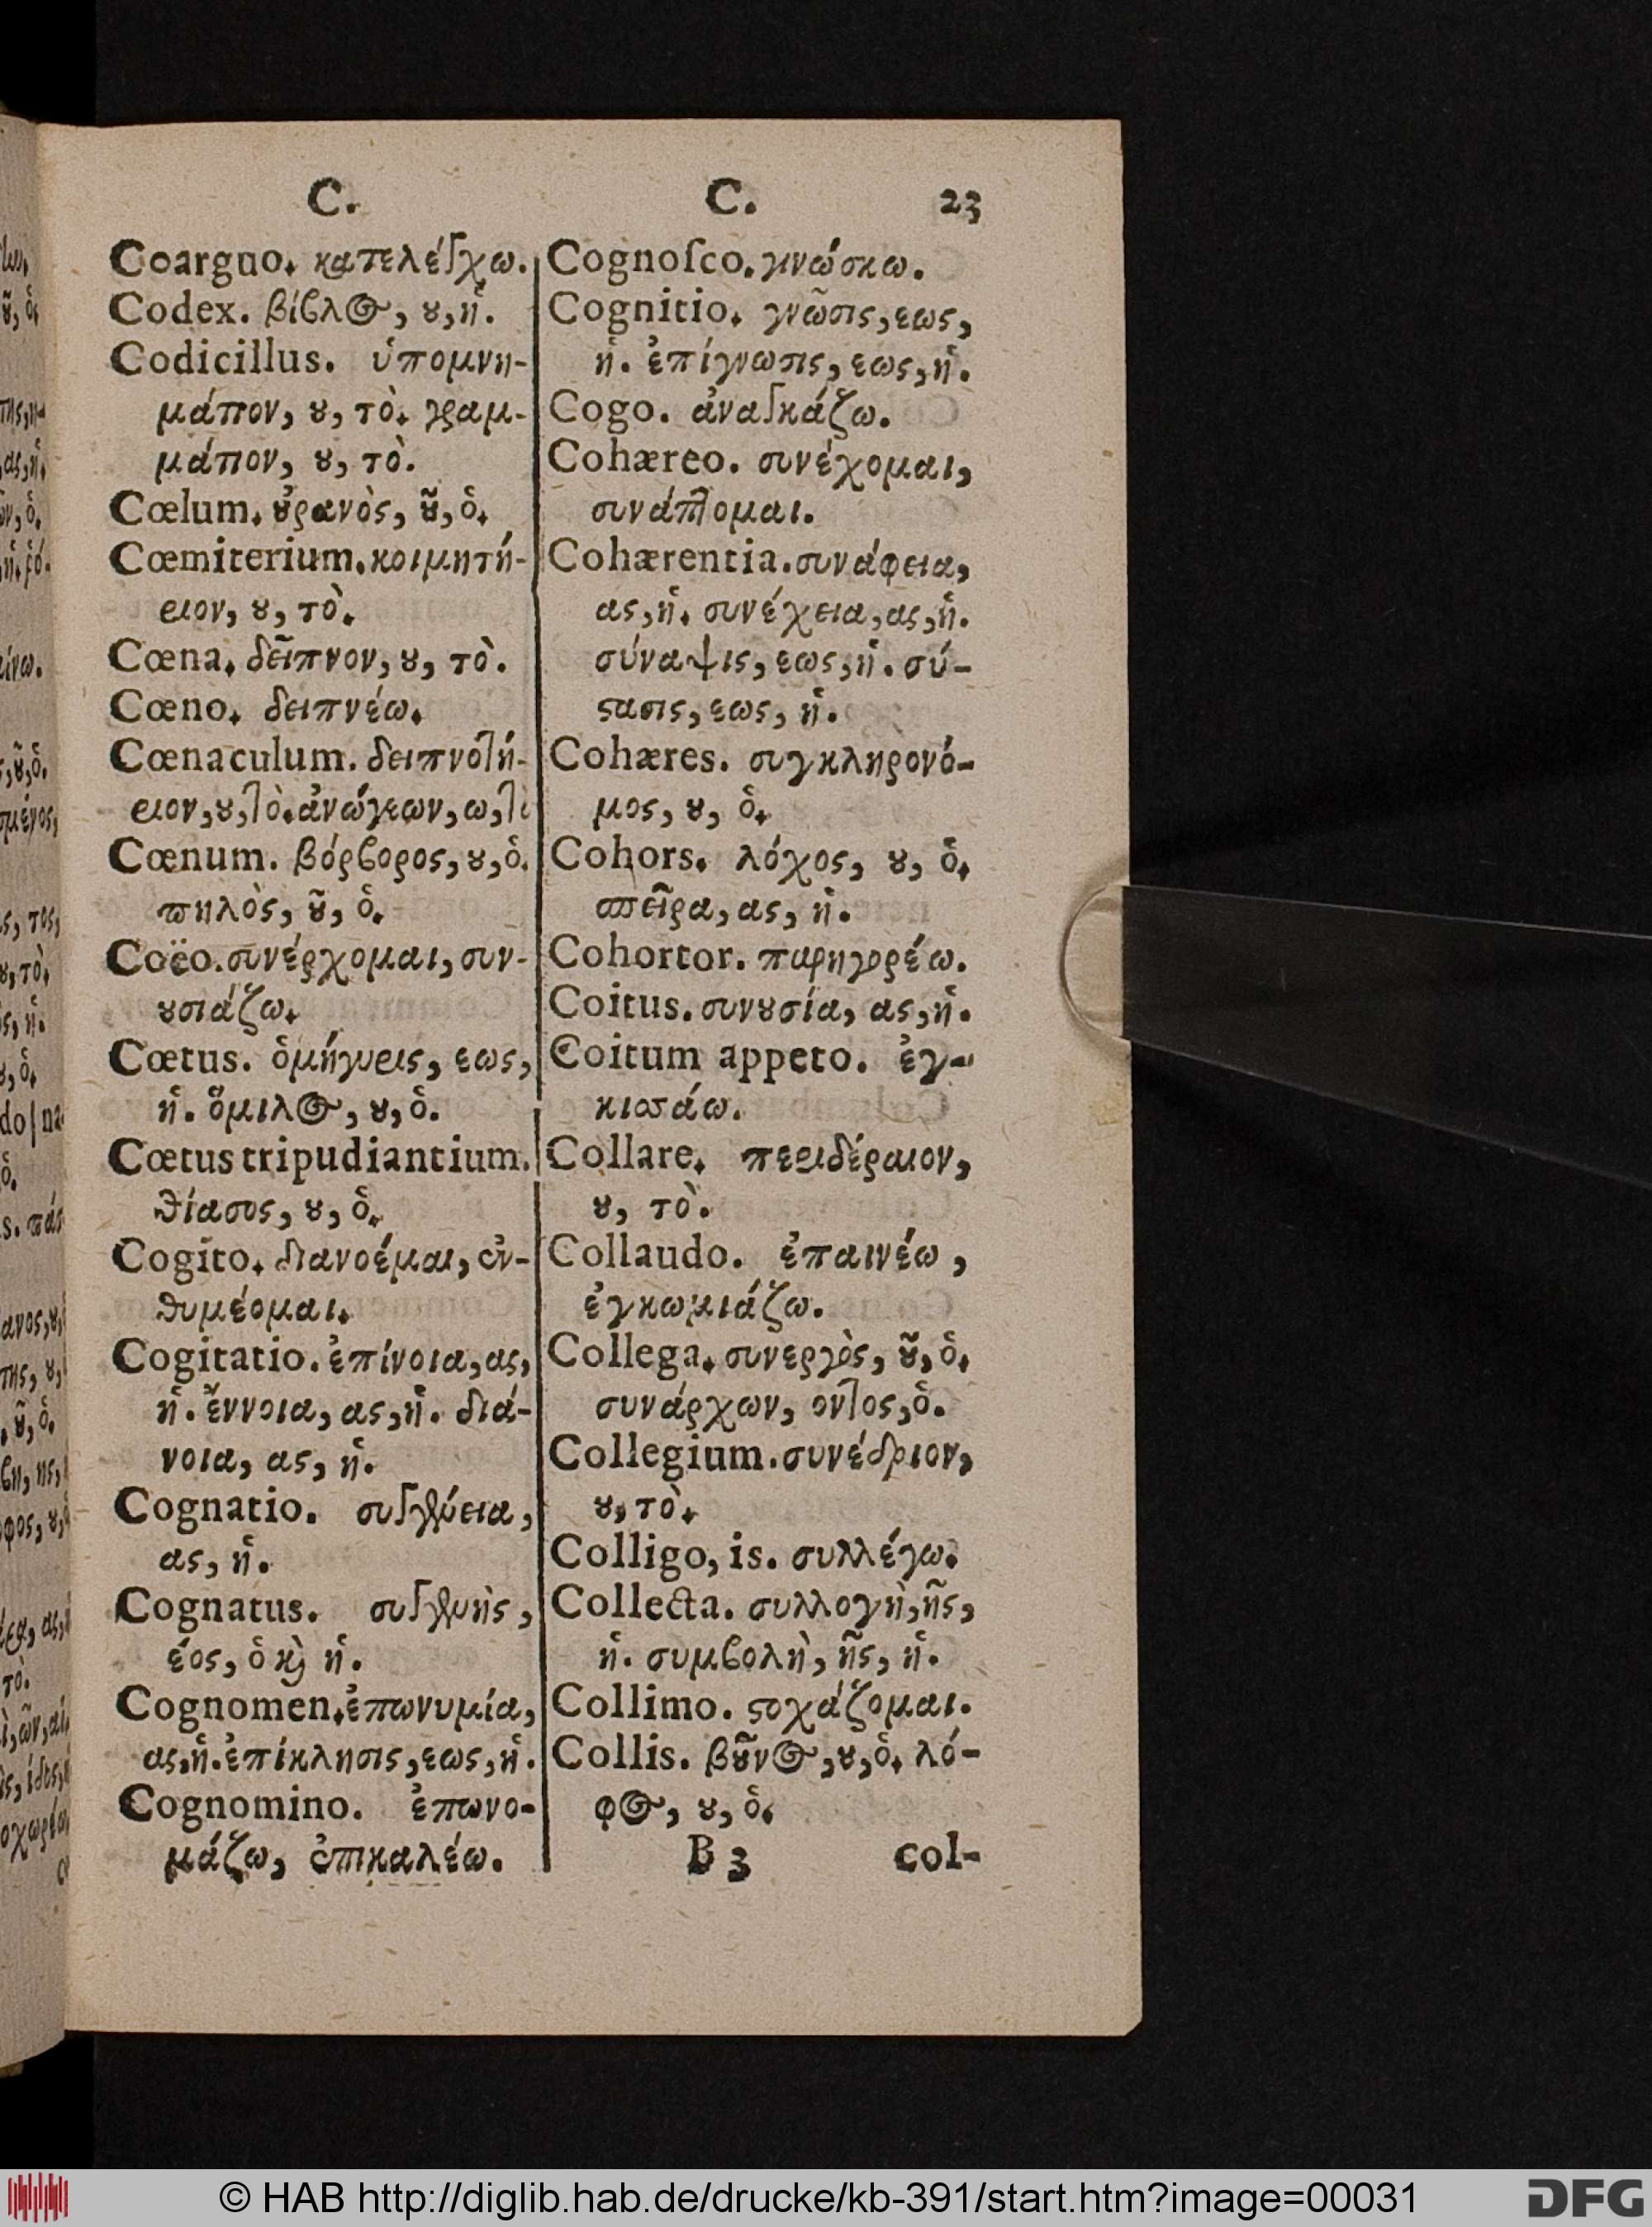 C.
Coarguo. κατελέγχω.
Codex. βίβλος, ȣ, ἡ.
Codicillus. ὑπομνη-
μάτιον, ȣ, τὸ. γραμ-
μάτιον, ȣ, τὸ.
Cœlum. ȣ̓ρανὸς, ȣ͂, ὁ.
Cœmiterium. κοιμητή-
ριον, ȣ, τὸ.
Cœna. δεῖπνον, ȣ, τὸ.
Cœno. δειπνέω.
Cœnaculum. δειπνοτή-
ριον, ȣ, τὸ. ἀνώγεων, ω, τὸ
Cœnum. βόρβορος, ȣ, ὁ.
πηλὸς, ȣ͂, ὁ.
Coëo. συνέρχομαι, συν-
ȣσιάζω.
Cœtus. ὁμήγυρις, εως,
ἡ. ὅμιλος, ȣ, ὁ.
Cœtus tripudiantium.
θίασος, ȣ, ὁ.
Cogito. διανοέμαι, ἐν-
θυμέομαι.
Cogitatio. ἐπίνοια, ας,
ἡ. ἔννοια, ας, ἡ. διά-
νοια, ας, ἡ.
Cognatio. συγγένεια,
ας, ἡ.
Cognatus. συγγενὴς,
έος, ὁ καὶ ἡ.
Cognomen. ἐπωνυμία,
ας, ἡ. ἐπίκλησις, εως, ἡ.
Cognomino. ἐπωνο-
μάζω, ἐπικαλέω.
C. 23
Cognoſco. γινώσκω.
Cognitio. γνῶσις, εως,
ἡ. ἐπίγνωσις, εως, ἡ.
Cogo. ἀναγκάζω.
Cohæreo. συνέχομαι,
συνάπτομαι.
Cohærentia. συνάφεια,
ας, ἡ. συνέχεια, ας, ἡ.
σύναψις, εως, ἡ. σύ-
ϛασις, εως, ἡ.
Cohæres. συγκληρονό-
μος, ȣ, ὁ.
Cohors. λόχος, ȣ, ὁ.
σπεῖρα, ας, ἡ.
Cohortor. παρηγορέω.
Coitus. συνȣσία, ας, ἡ.
Coitum appeto. ἐγ-
κισσάω.
Collare. περιδέραιον,
ȣ, τὸ.
Collaudo. ἐπαινέω,
ἐγκωμιάζω.
Collega. συνεργὸς, ȣ͂, ὁ.
συνάρχων, οντος, ὁ.
Collegium. συνέδριον,
ȣ, τὸ.
Colligo, is. συλλέγω.
Collecta. συλλογὴ, ῆς,
ἡ. συμβολὴ, ῆς, ἡ.
Collimo. ϛοχάζομαι.
Collis. βȣ͂νος, ȣ, ὁ. λό-
φος, ȣ, ὁ.
B 3 col-
© HAB http://diglib.hab.de/drucke/kb-391/start.htm?image=00031
DFG